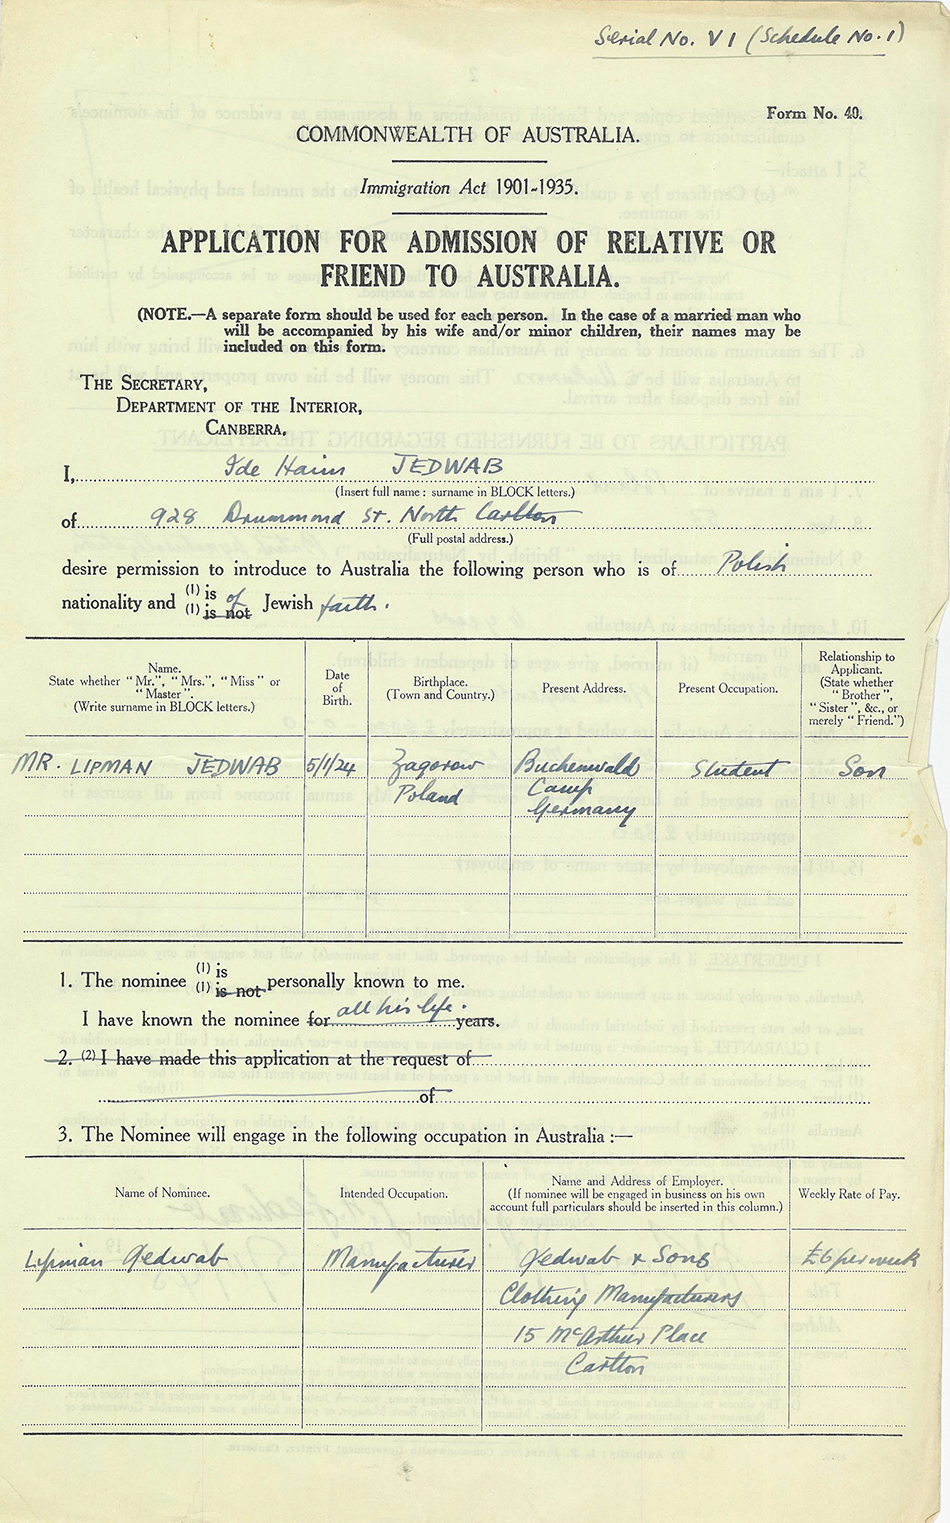 Serial No. V 1 (Schedule No. 1)
Form No. 40.
COMMONWEALTH OF AUSTRALIA.
Immigration Act 1901-1935.
APPLICATION FOR ADMISSION OF RELATIVE OR
FRIEND TO AUSTRALIA.
(NOTE.—A separate form should be used for each person. In the case of a married man who
will be accompanied by his wife and/or minor children, their names may be
included on this form.
THE SECRETARY,
DEPARTMENT OF THE INTERIOR,
CANBERRA.
I, Ide Haim JEDWAB
(Insert full name : surname in BLOCK letters.)
of 928 Drummond St. North Carlton
(Full postal address.)
desire permission to introduce to Australia the following person who is of Polish
nationality and (1) is of Jewish faith.
(1) is not
Name.
State whether "Mr.", "Mrs.", "Miss" or
"Master".
(Write surname in BLOCK letters.)
Date
of
Birth.
Birthplace.
(Town and Country.)
Present Address.
Present Occupation.
Relationship to
Applicant.
(State whether
"Brother",
"Sister", &c., or
merely "Friend.")
MR. LIPMAN JEDWAB 5/1/24 Zagorow Buchenwald Student Son
Poland Camp
Germany
1. The nominee (1) is personally known to me.
(1) is not
I have known the nominee for all his life. years.
2. (2) I have made this application at the request of
of
3. The Nominee will engage in the following occupation in Australia :—
Name of Nominee.
Intended Occupation.
Name and Address of Employer.
(If nominee will be engaged in business on his own
account full particulars should be inserted in this column.)
Weekly Rate of Pay.
Lipman Jedwab Manufacturer Jedwab & Sons £6 per week
Clothing Manufacturers
15 McArthur Place
Carlton